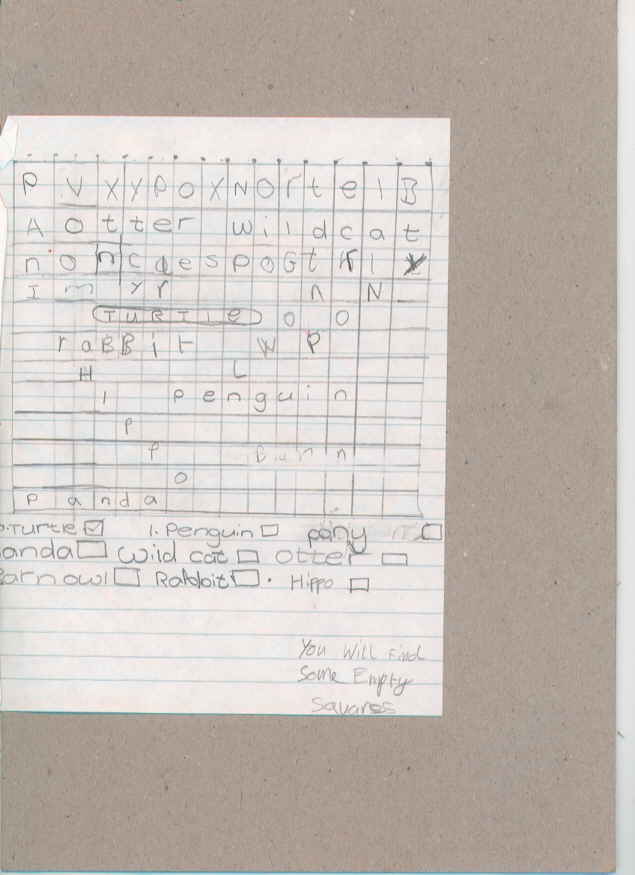 P V X Y P O X N O r t e l B
A O t t e r w i l d c a t
n O n c d e s p O G t K I Y
I m Y r n N
T U R T l e O O
r a B B i t W P
H L
I p e n g u i n
P
P B u n n
O
P a n d a
Turtle 1. Penguin pany
anda Wild cat otter
arn owl Rabbit . Hippo
You Will Find
Some Empty
Squares